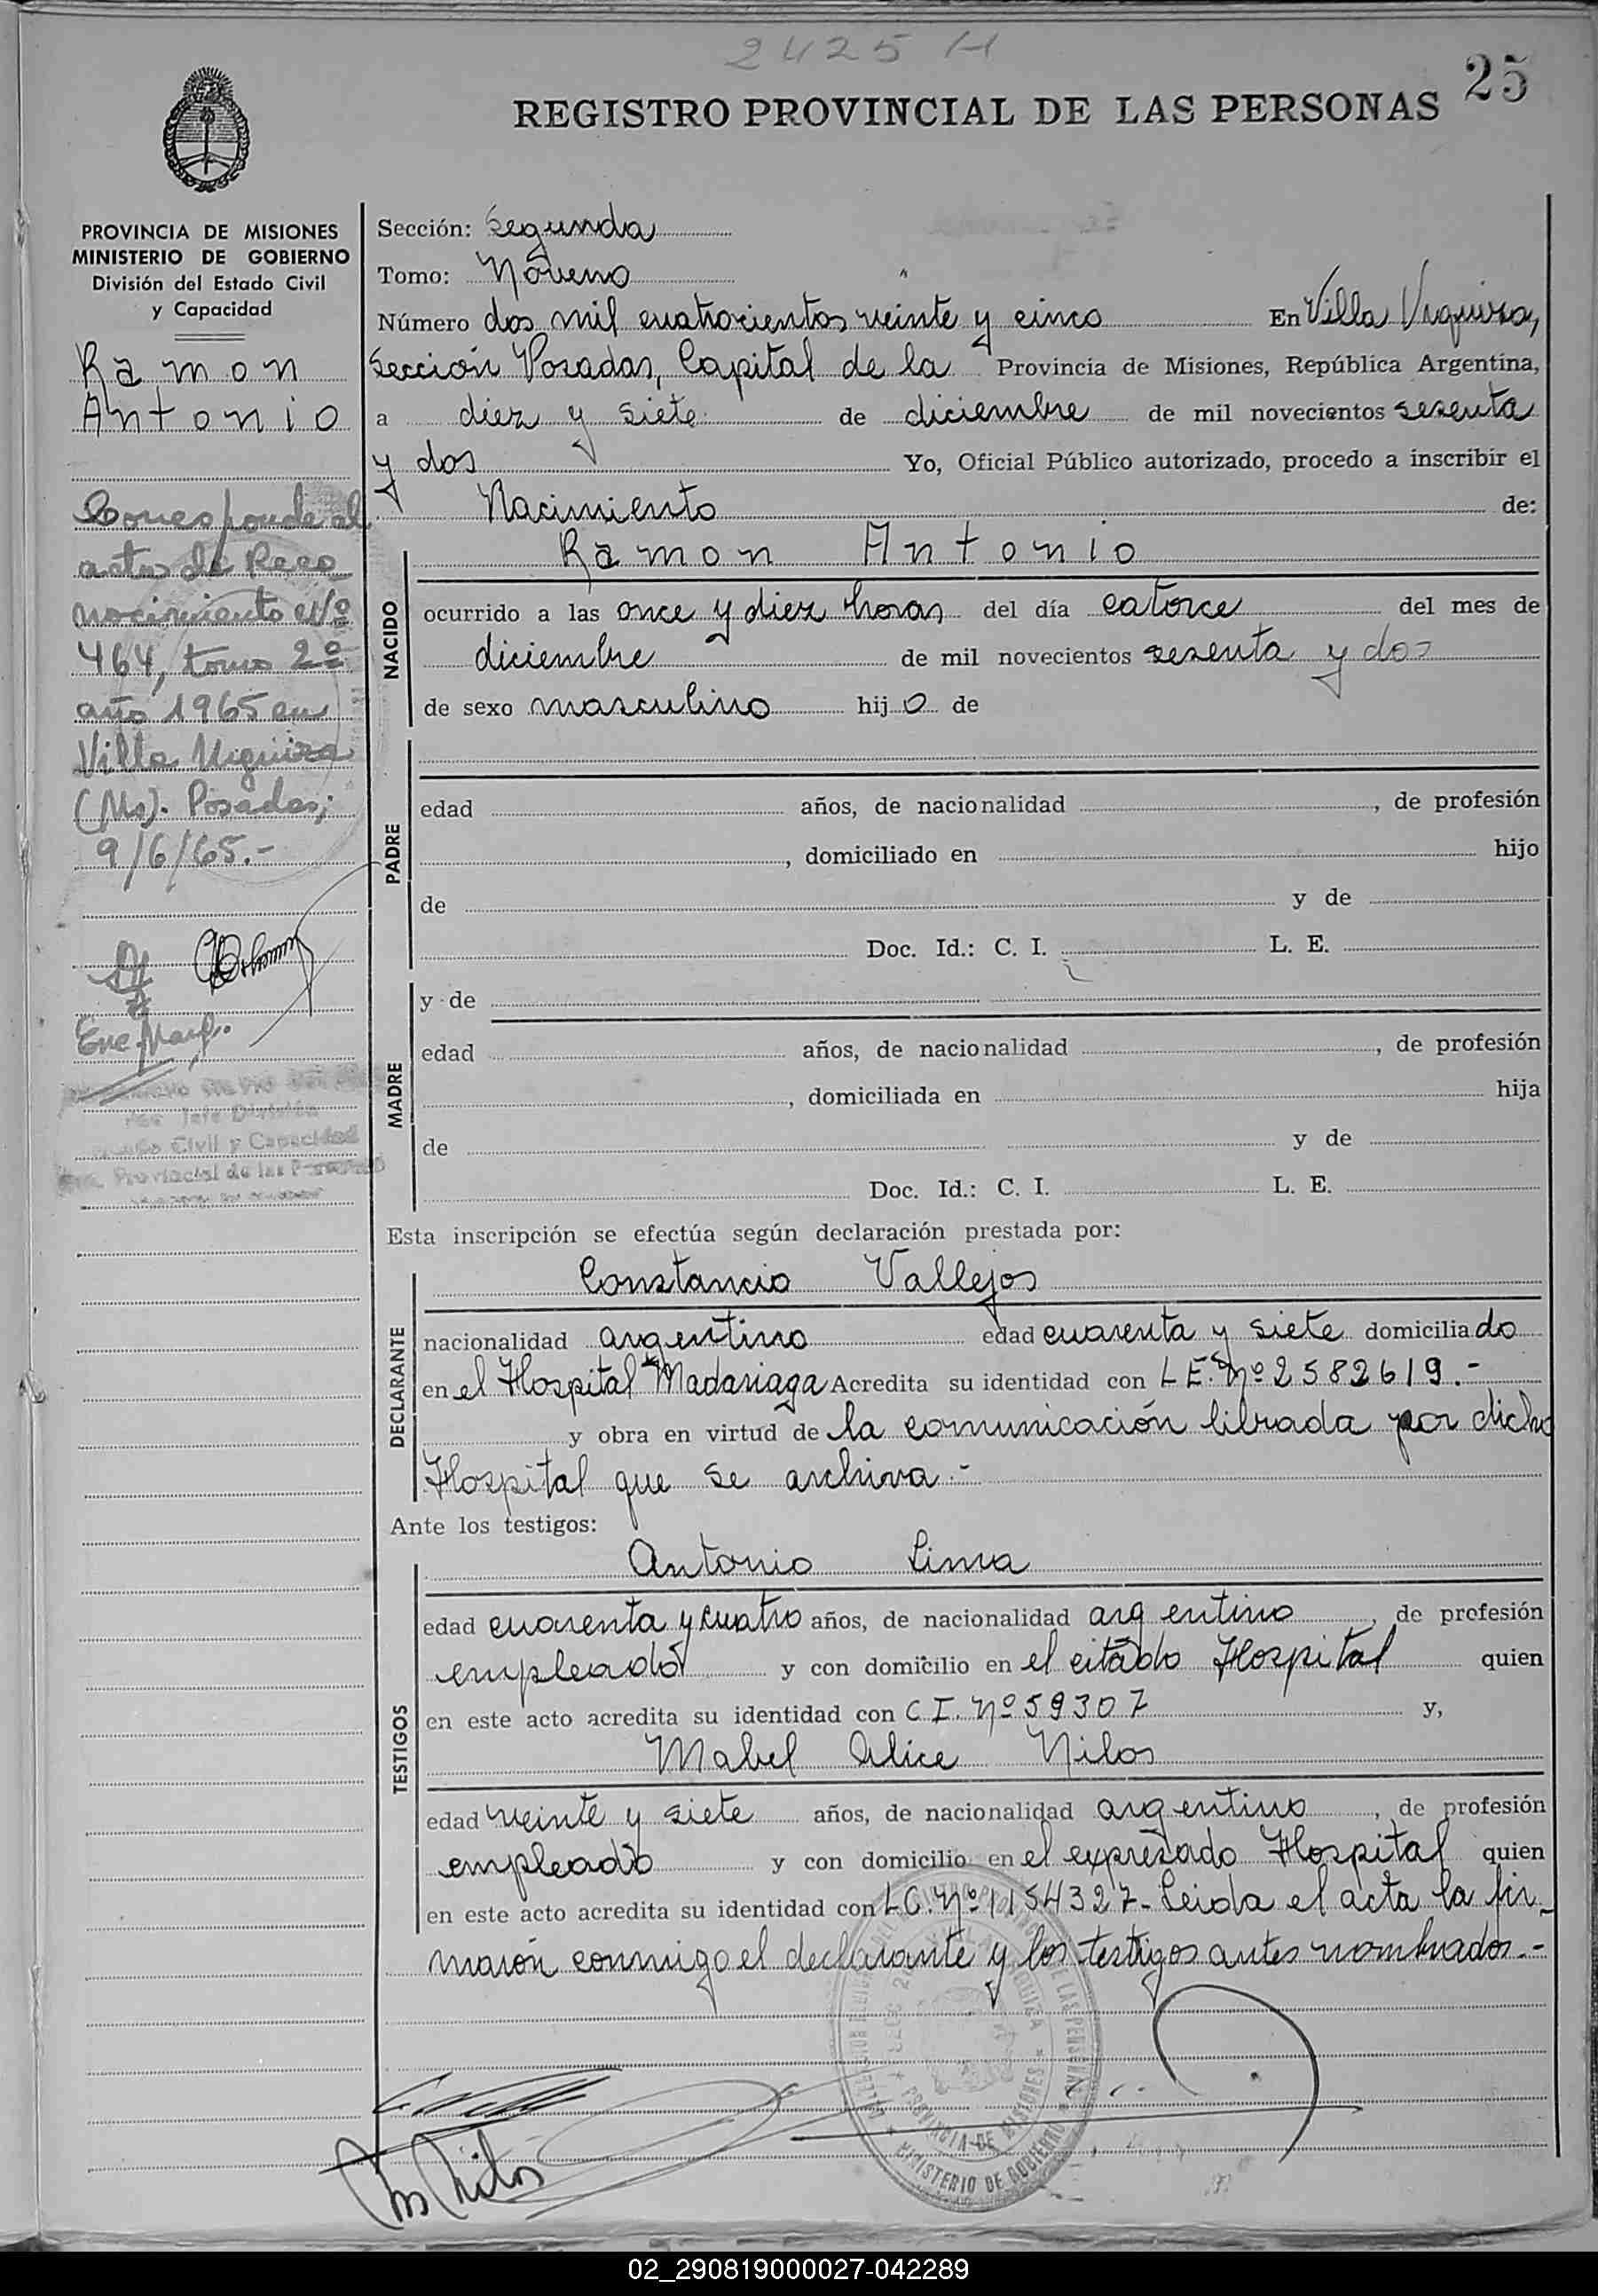 2425 H
25
REGISTRO PROVINCIAL DE LAS PERSONAS
PROVINCIA DE MISIONES
MINISTERIO DE GOBIERNO
División del Estado Civil
y Capacidad
Ramon
Antonio
Corresponde al
acta de Reco
nocimiento Nº
464, tomo 2º
año 1965 en
Villa Urquiza
(Ms). Posadas;
9/6/65.-
Enc. Marg.
Jefe División
Civil y Capacidad
Provincial de las Personas
Sección: Segunda
Tomo: Noveno
Número dos mil cuatrocientos veinte y cinco En Villa Urquiza,
Sección Posadas, Capital de la Provincia de Misiones, República Argentina,
a diez y siete de diciembre de mil novecientos sesenta
y dos Yo, Oficial Público autorizado, procedo a inscribir el
Nacimiento de:
Ramon Antonio
NACIDO
ocurrido a las once y diez horas del día catorce del mes de
diciembre de mil novecientos sesenta y dos
de sexo masculino hijo de
PADRE
edad años, de nacionalidad , de profesión
, domiciliado en hijo
de y de
Doc. Id.: C. I. L. E.
MADRE
y de
edad años, de nacionalidad , de profesión
, domiciliada en hija
de y de
Doc. Id.: C. I. L. E.
Esta inscripción se efectúa según declaración prestada por:
DECLARANTE
Constancio Vallejos
nacionalidad argentino edad cuarenta y siete domiciliado
en el Hospital Madariaga Acredita su identidad con L.E. Nº 2582619.-
y obra en virtud de la comunicación librada por dicho
Hospital que se archiva.-
Ante los testigos:
TESTIGOS
Antonio Lima
edad cuarenta y cuatro años, de nacionalidad argentino, de profesión
empleado y con domicilio en el citado Hospital quien
en este acto acredita su identidad con C.I. Nº 59307 y,
Mabel Alice Nilos
edad veinte y siete años, de nacionalidad argentino, de profesión
empleado y con domicilio en el expresado Hospital quien
en este acto acredita su identidad con L.C. Nº 1154327- Leida el acta la fir_
maron conmigo el declarante y los testigos antes nombrados.-
PROVINCIA DE MISIONES
MINISTERIO DE GOBIERNO
02_290819000027-042289